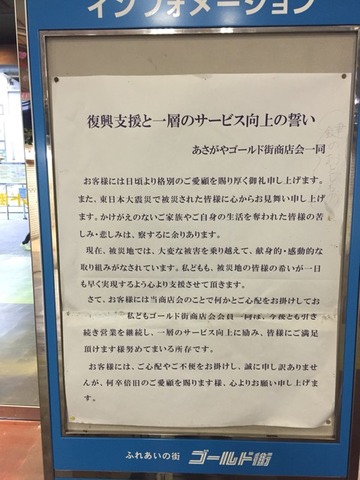 インフォメーション
復興支援と一層のサービス向上の誓い
あさがやゴールド街商店会一同
お客様には日頃より格別のご愛顧を賜り厚く御礼申し上げます。
また、東日本大震災で被災された皆様に心からお見舞い申し上げ
ます。かけがえのないご家族やご自身の生活を奪われた皆様の苦
しみ・悲しみは、察するに余りあります。
現在、被災地では、大変な被害を乗り越えて、献身的・感動的な
取り組みがなされています。私どもも、被災地の皆様の希いが一日
も早く実現するよう心より支援させて頂きます。
さて、お客様には当商店会のことで何かとご心配をお掛けしてお
私どもゴールド街商店会会員一同は、今後とも引き
続き営業を継続し、一層のサービス向上に励み、皆様にご満足
頂けます様努めてまいる所存です。
お客様には、ご心配やご不便をお掛けし、誠に申し訳ありませ
んが、何卒倍旧のご愛顧を賜ります様、心よりお願い申し上げま
す。
ふれあいの街 ゴールド街